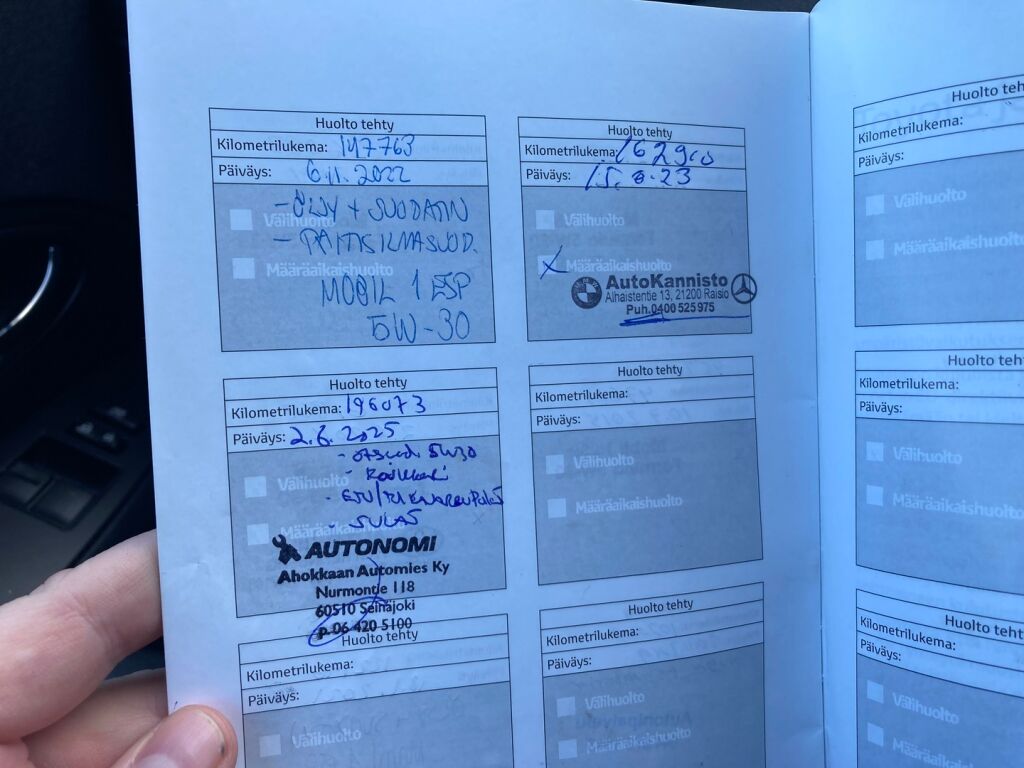 Huolto tehty
Kilometrilukema: 147763
Päiväys: 6.11.2022
- ÖLJY + SUODATIN
Välihuolto
- RAITISILMASUOD.
Määräaikaishuolto
MOBIL 1 ESP
5W-30
Huolto tehty
Kilometrilukema:
Päiväys:
Välihuolto
X Määräaikaishuolto
AutoKannisto
Alhaistentie 13, 21200 Raisio
Puh.0400 525975
Huolto tehty
Kilometrilukema: 196073
Päiväys: 2.6.2025
5W30
Välihuolto
- ETU/TAKAJARRUPALAT
Määräaikaishuolto
AUTONOMI
Ahokkaan Automies Ky
Nurmontie 118
60510 Seinäjoki
P. 06 420 5100
Huolto tehty
Kilometrilukema:
Päiväys:
Välihuolto
Määräaikaishuolto
Huolto tehty
Kilometrilukema:
Päiväys:
Välihuolto
Huolto tehty
Kilometrilukema:
Päiväys:
Välihuolto
Määräaikaishuolto
Huolto
Kilometrilukema:
Päiväys:
Välihuolto
Määräaikaishuolto
Huolto tehty
Kilometrilukema:
Päiväys:
Välihuolto
Määräaikaishuolto
Huolto
Kilometrilukema:
Päiväys:
Välihuolto
Määräaikaishuolto